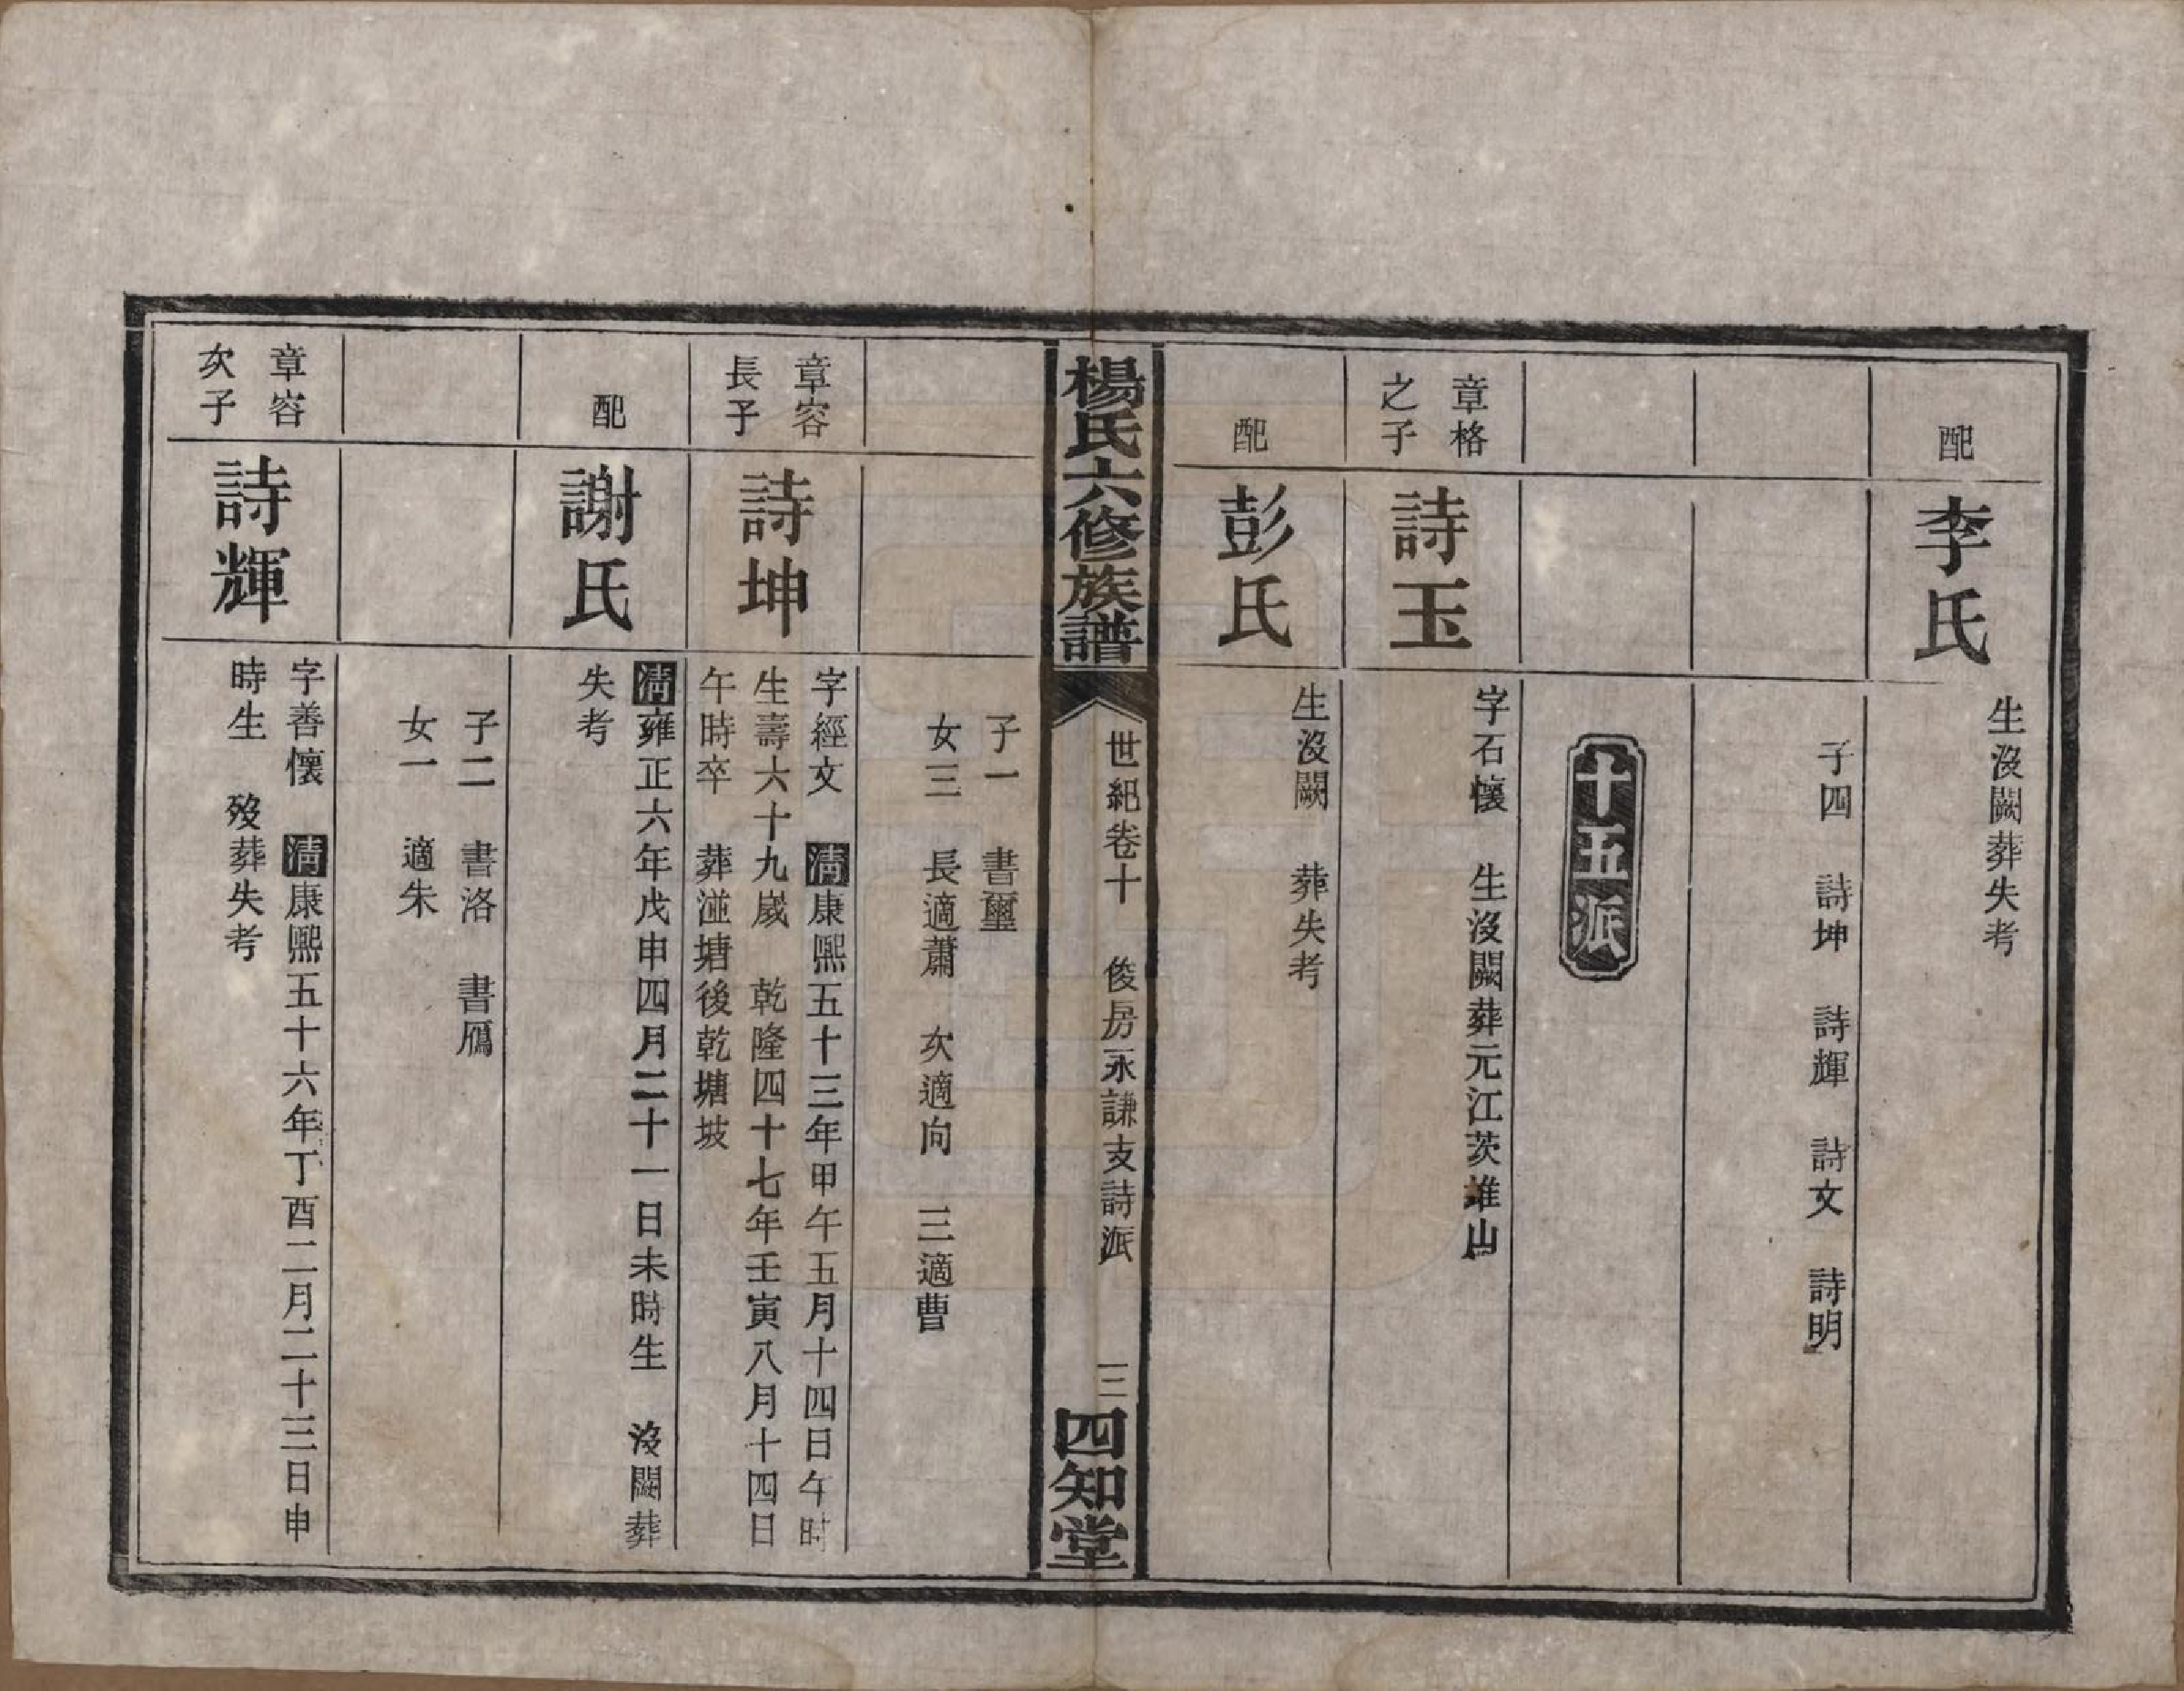 配
李氏
生沒闕葬失考
子四　詩坤　詩輝　詩文　詩明
十五派
章格
之子
詩玉
字石懷　生沒闕葬元江茨堆山
配
彭氏
生沒闕　葬失考
楊氏六修族譜
世紀卷十　俊房永謙支詩派
三
四知堂
子一　書璽
女三　長適蕭　次適向　三適曹
章容
長子
詩坤
字經文　清康熙五十三年甲午五月十四日午時
生壽六十九歲　乾隆四十七年壬寅八月十四日
午時卒　葬湴塘後乾塘坡
配
謝氏
清雍正六年戊申四月二十一日未時生　沒闕葬
失考
子二　書洛　書鴈
女一　適朱
章容
次子
詩輝
字善懷　清康熙五十六年丁酉二月二十三日申
時生　歿葬失考